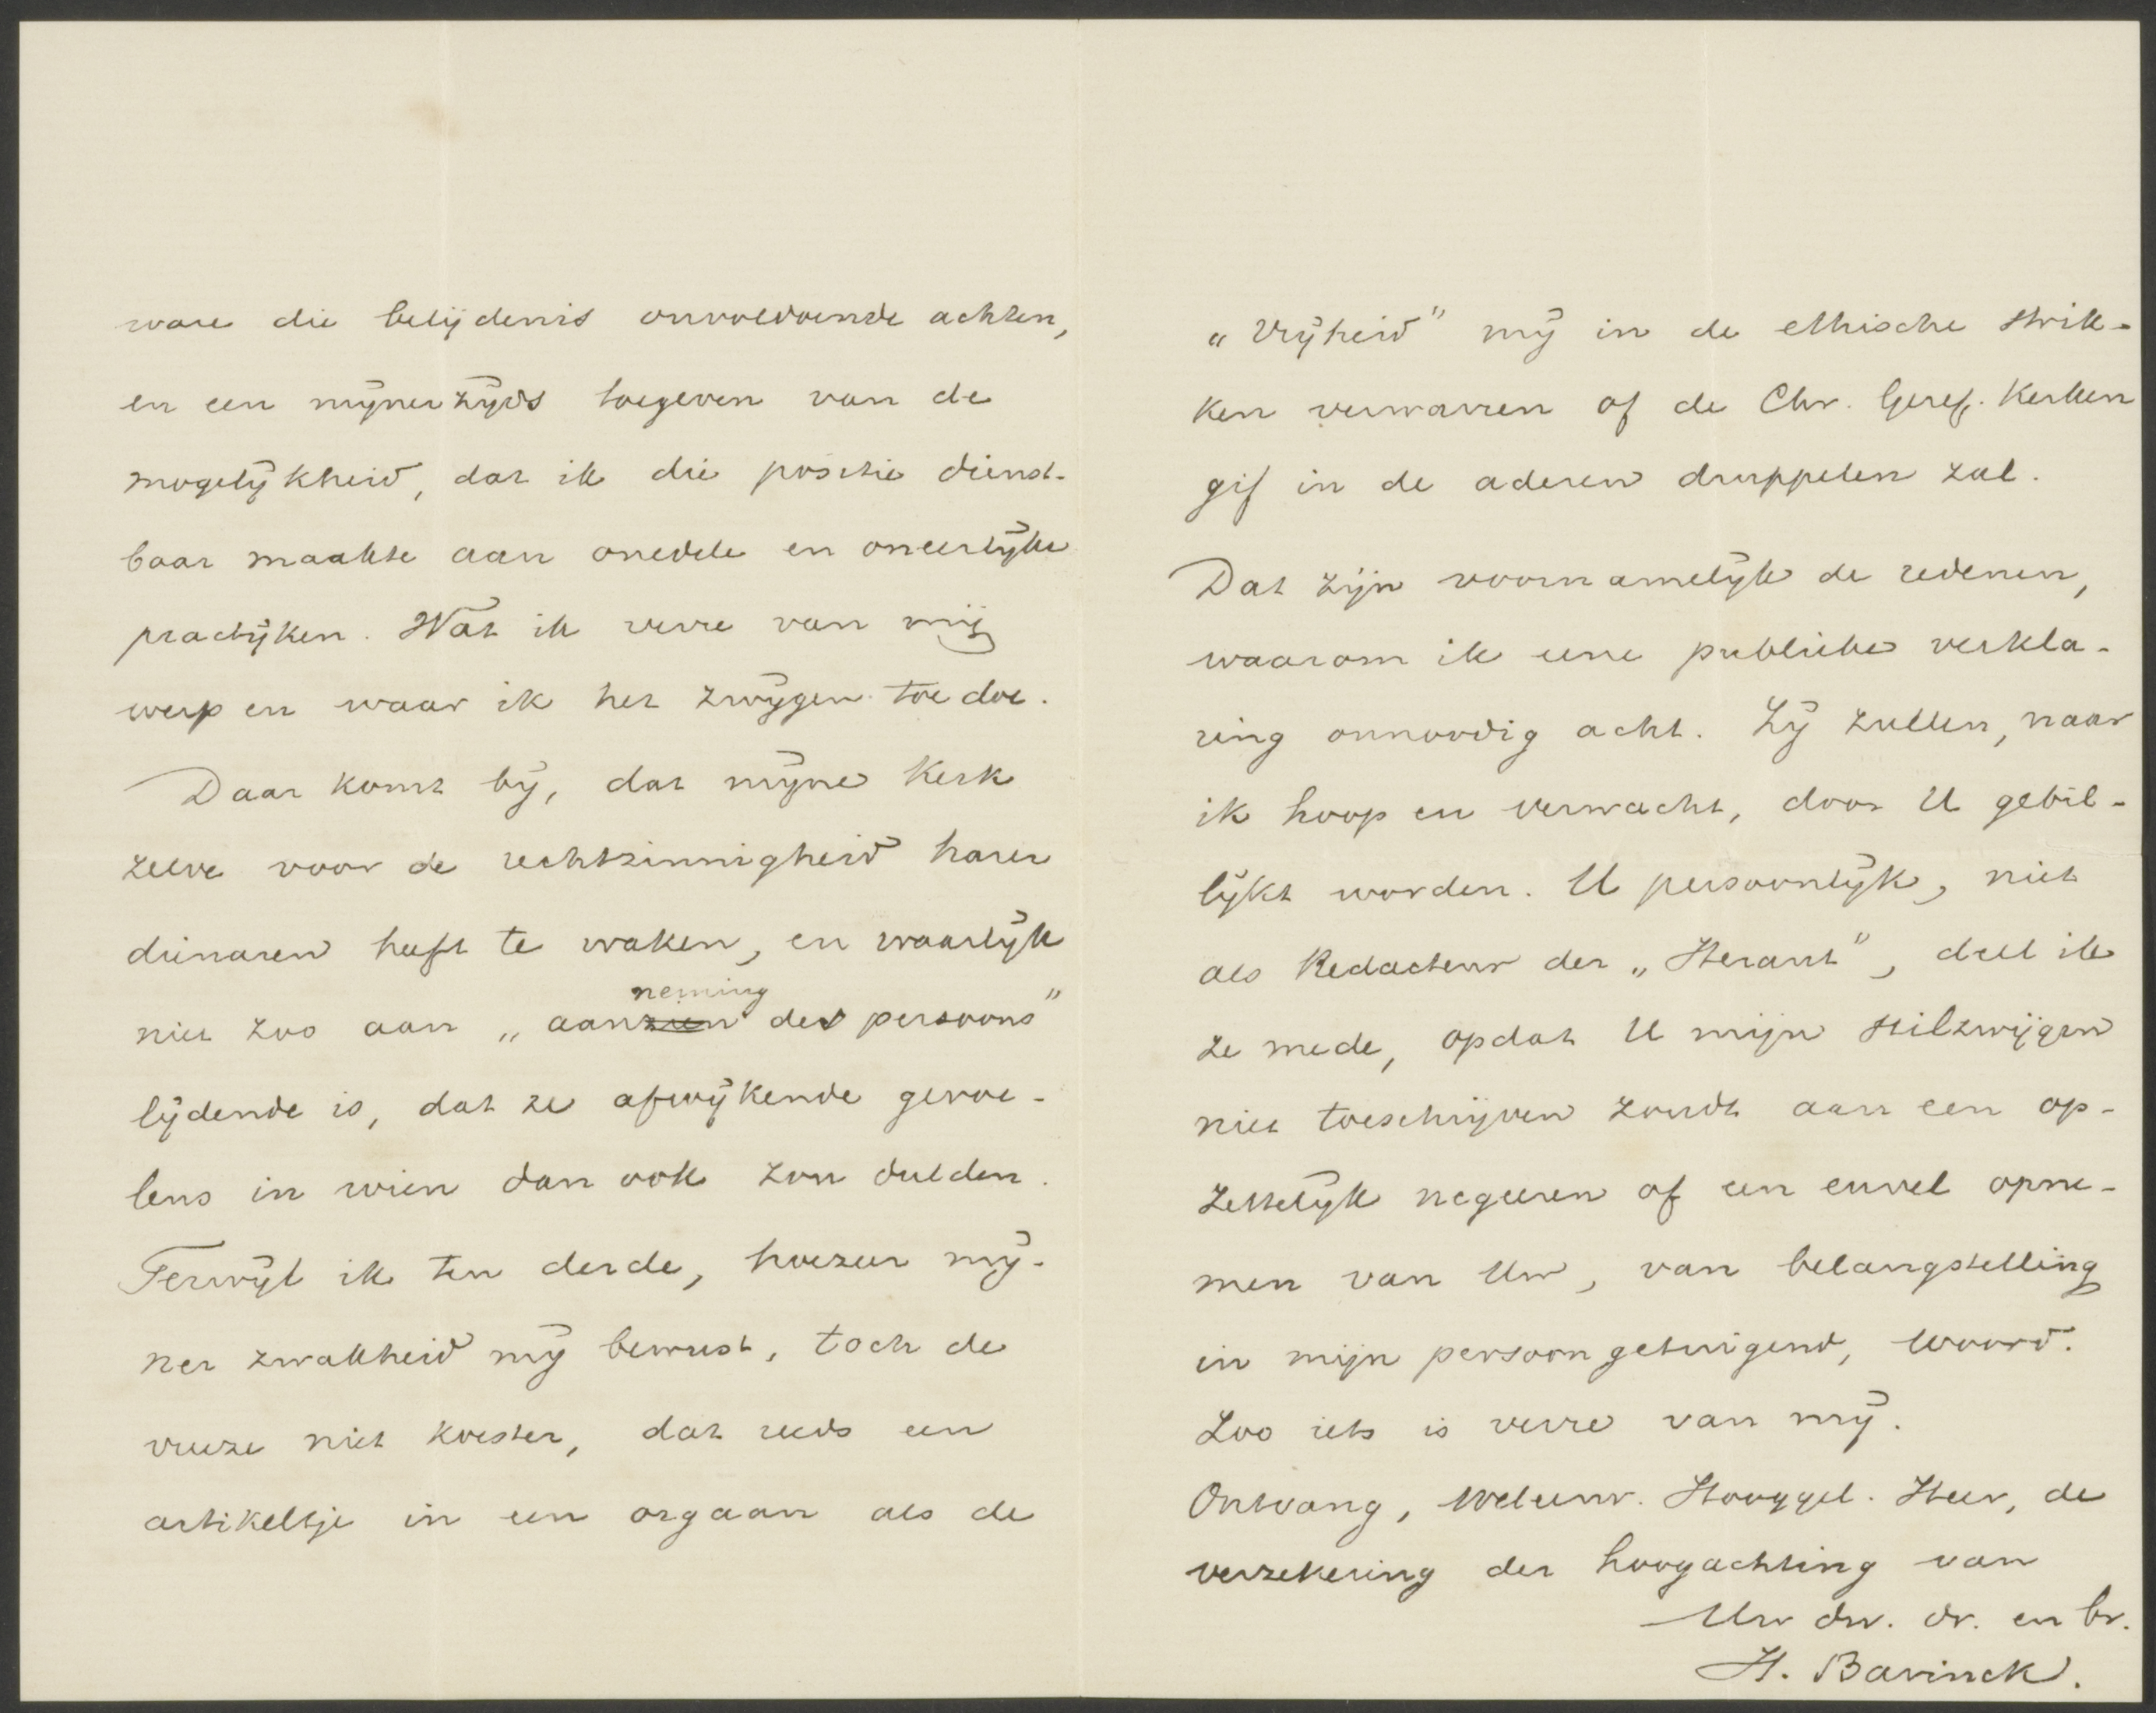 ware die belijdenis onvoldoende achten,
en een mijnerzijds toegeven van de
mogelijkheid, dat ik die positie dienst-
baar maakte aan onedele en oneerlijke
practijken. Wat ik verre van mij
werp en waar ik het zwijgen toe doe.
Daar komt bij, dat mijne Kerk
zelve voor de rechtzinnigheid harer
dienaren heeft te waken, en waarlijk
niet zoo aan „aanzien neming des persoons"
lijdende is, dat ze afwijkende gevoe-
lens in wien dan ook zou dulden.
Terwijl ik ten derde, hoezeer mij-
ner zwakheid mij bewust, toch de
vreeze niet koester, dat reeds een
artikeltje in een orgaan als de
„Vrijheid" mij in de ethische strik-
ken verwarren of de Chr. Geref. Kerken
gif in de aderen druppelen zal.
Dat zijn voornamelijk de redenen,
waarom ik eene publieke verkla-
ring onnoodig acht. Zij zullen, naar
ik hoop en verwacht, door U gebil-
lijkt worden. U persoonlijk, niet
als Redacteur der „Heraut", deel ik
ze mede, opdat U mijn stilzwijgen
niet toeschrijven zoudt aan een op-
zettelijk negeeren of een euvel opne-
men van Uw, van belangstelling
in mijn persoon getuigend, woord.
Zoo iets is verre van mij.
Ontvang, Weleerw. Hooggel. Heer, de
verzekering der hoogachting van
Uw dw. dr. en br.
H. Bavinck.